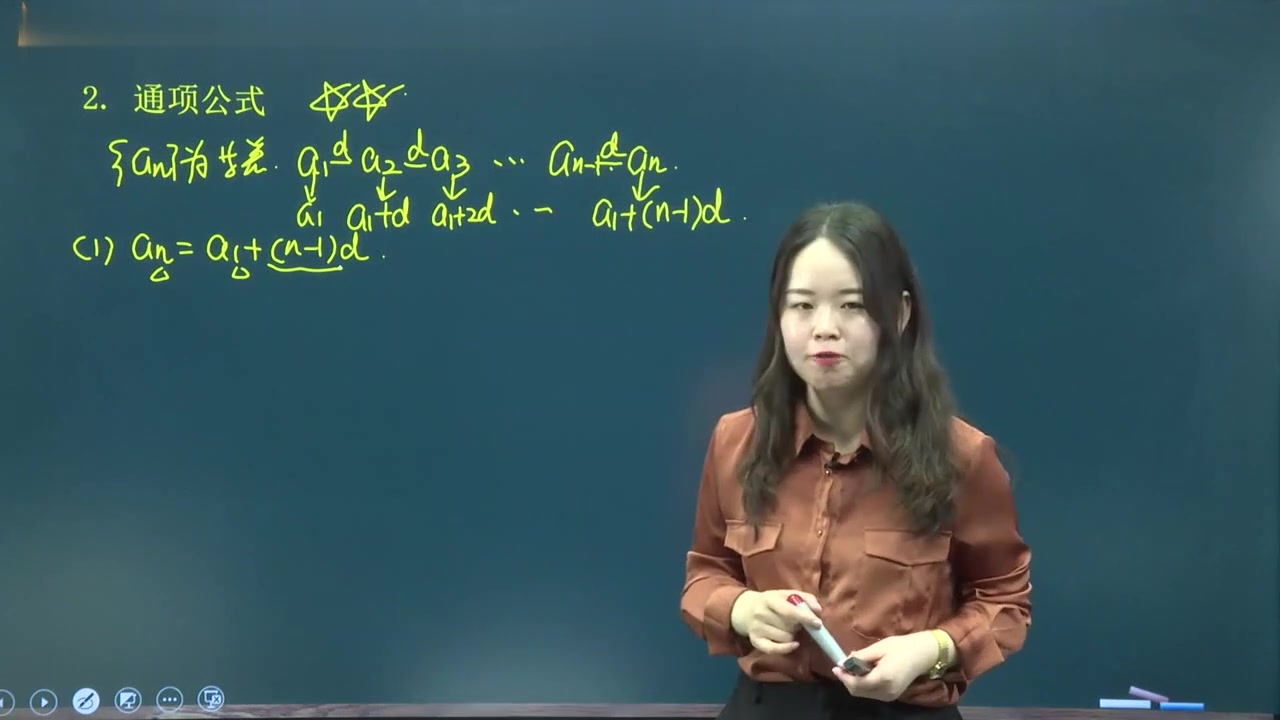 2. 通项公式 ☆☆
{an}为等差. a1 d a2 d a3 … an-1 d an.
a1 a1+d a1+2d … a1+(n-1)d.
(1) an = a1+(n-1)d.